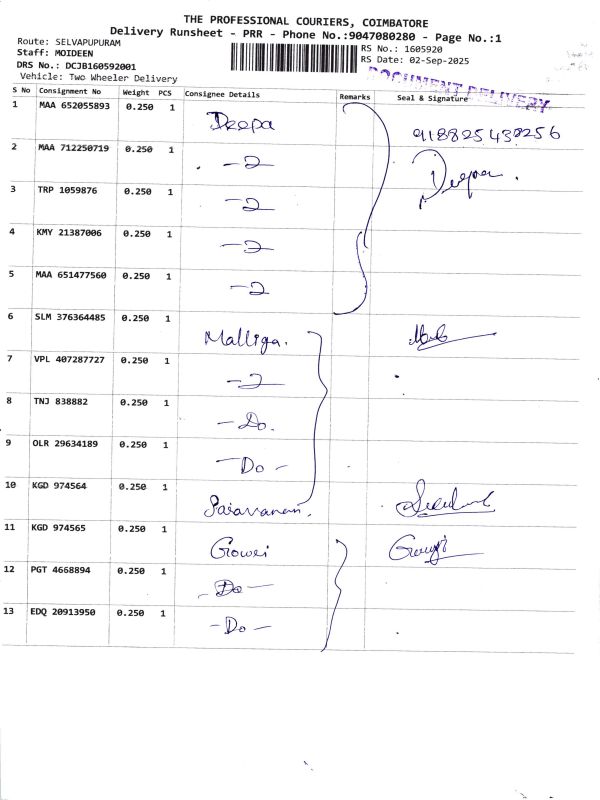 THE PROFESSIONAL COURIERS, COIMBATORE
Delivery Runsheet - PRR - Phone No.:9047080280 - Page No.:1
Route: SELVAPUPURAM
Staff: MOIDEEN
DRS No.: DCJB160592001
Vehicle: Two Wheeler Delivery
RS No.: 1605920
RS Date: 02-Sep-2025
DOCUMENT DELIVERY
S No Consignment No Weight PCS Consignee Details Remarks Seal & Signature
1 MAA 652055893 0.250 1 Deepa 918825430256
2 MAA 712250719 0.250 1 Deepa.
3 TRP 1059876 0.250 1
4 KMY 21387006 0.250 1
5 MAA 651477560 0.250 1
6 SLM 376364485 0.250 1 Malliga.
7 VPL 407287727 0.250 1
8 TNJ 838882 0.250 1 -Do.
9 OLR 29634189 0.250 1 -Do-
10 KGD 974564 0.250 1 Saravanan.
11 KGD 974565 0.250 1 Gowri
12 PGT 4668894 0.250 1 -Do-
13 EDQ 20913950 0.250 1 -Do-